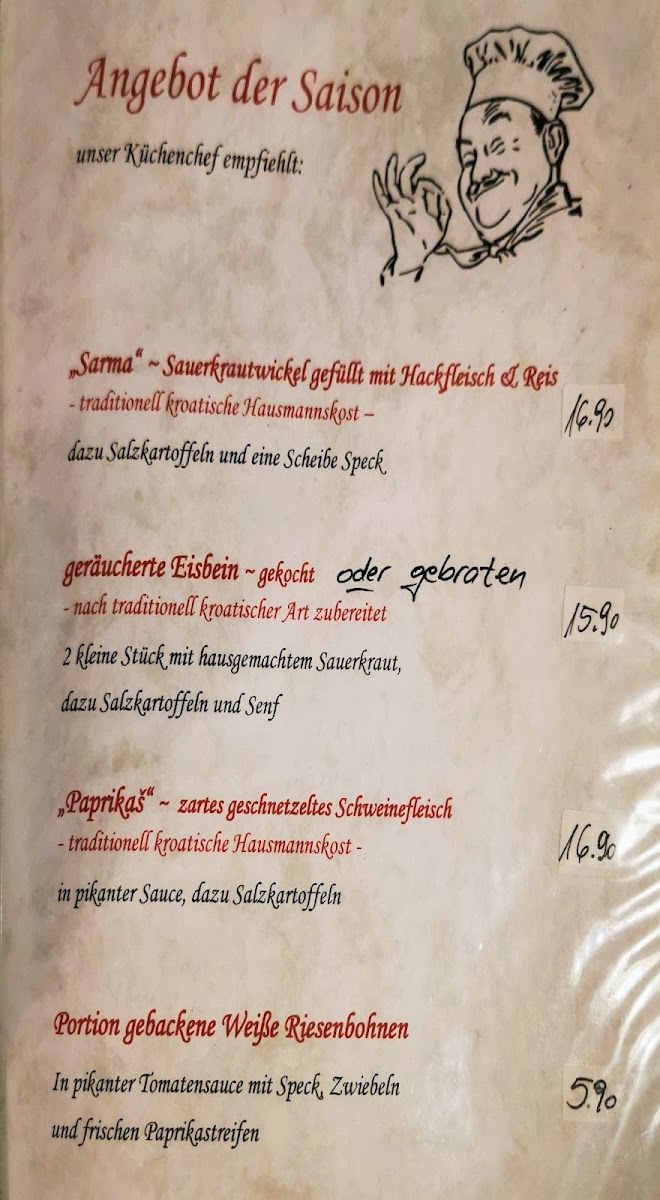 Angebot der Saison
unser Küchenchef empfiehlt:
„Sarma“ ~ Sauerkrautwickel gefüllt mit Hackfleisch & Reis
- traditionell kroatische Hausmannskost –
16.90
dazu Salzkartoffeln und eine Scheibe Speck
geräucherte Eisbein ~ gekocht oder gebraten
- nach traditionell kroatischer Art zubereitet
15.90
2 kleine Stück mit hausgemachtem Sauerkraut,
dazu Salzkartoffeln und Senf
„Paprikaš“ ~ zartes geschnetzeltes Schweinefleisch
- traditionell kroatische Hausmannskost -
16.90
in pikanter Sauce, dazu Salzkartoffeln
Portion gebackene Weiße Riesenbohnen
In pikanter Tomatensauce mit Speck, Zwiebeln
5.90
und frischen Paprikastreifen